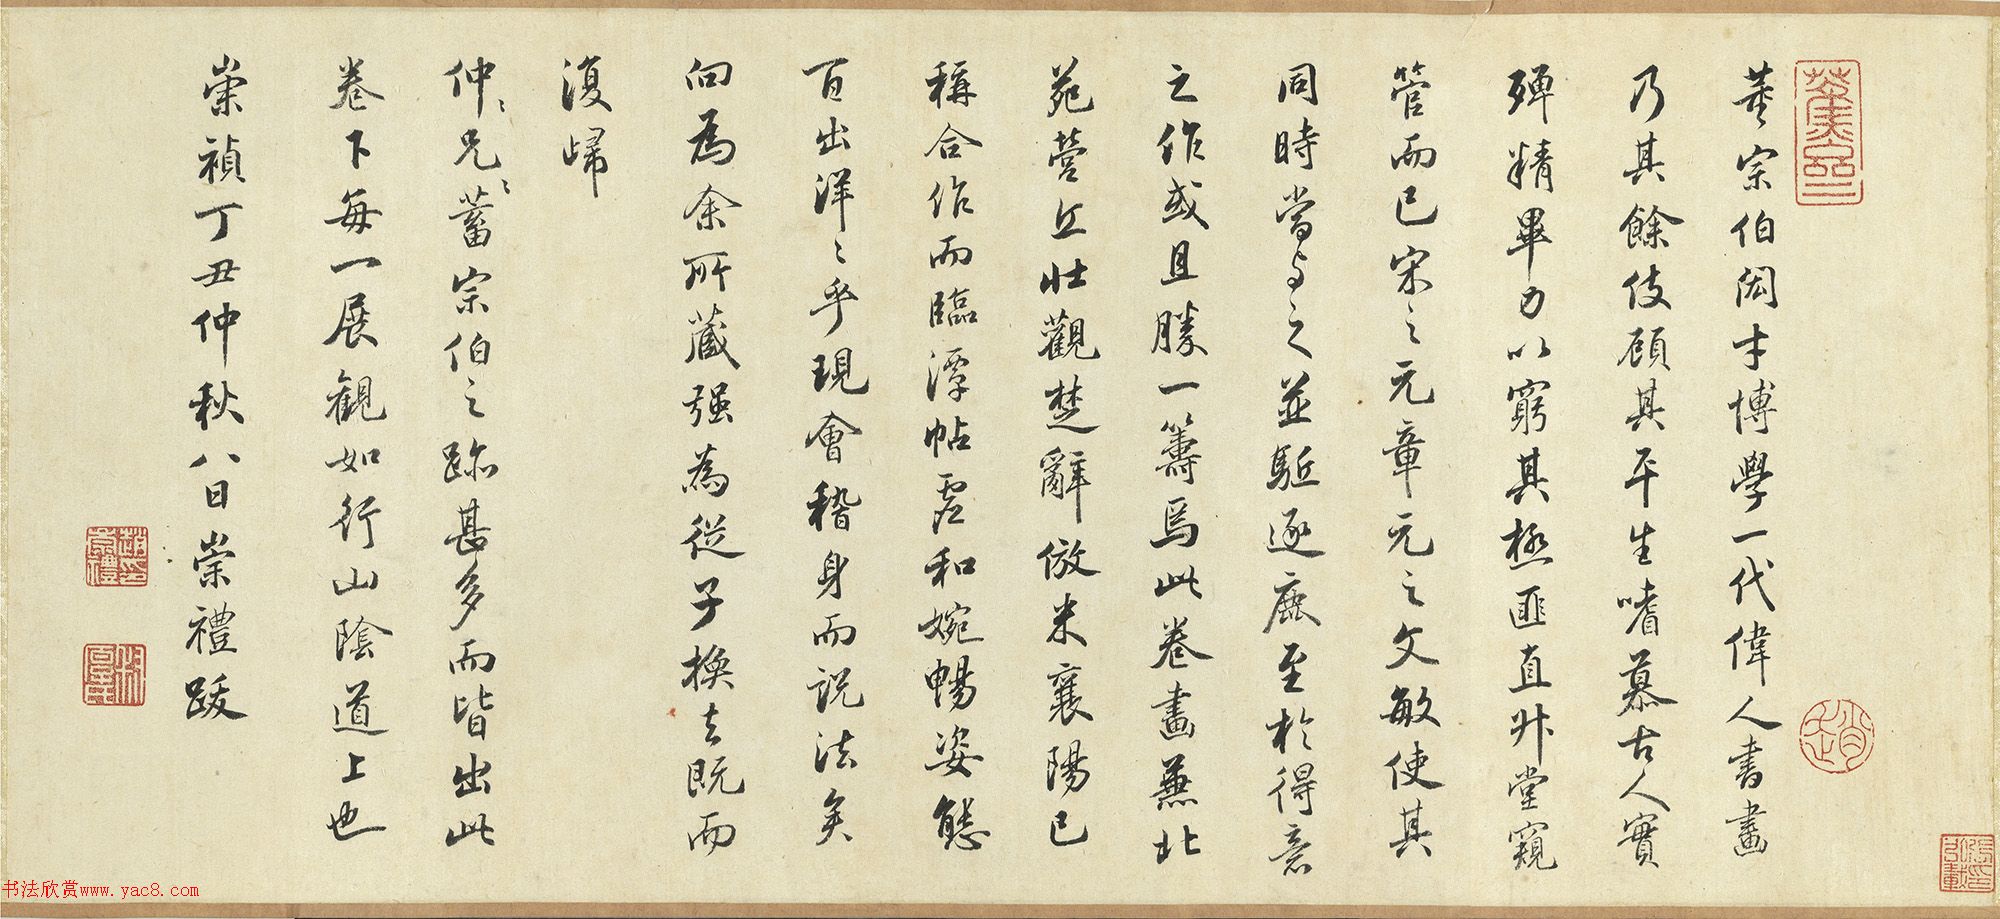 董宗伯閎才博學一代偉人書畫
乃其餘伎顧其平生嗜慕古人實
殫精畢力以窮其極匪直升堂窺
管而已宋之元章元之文敏使其
同時當與之並駈逐鹿至於得意
之作或且勝一籌焉此卷畫兼北
苑營丘壯觀楚辭倣米襄陽已
稱合作而臨潭帖虛和婉暢姿態
百出洋〻乎現會稽身而説法矣
向為余所藏强為從子換去既而
復歸
仲〻兄〻蓄宗伯之跡甚多而皆出此
卷下每一展觀如行山陰道上也
崇禎丁丑仲秋八日崇禮跋
书法欣赏www.yac8.com